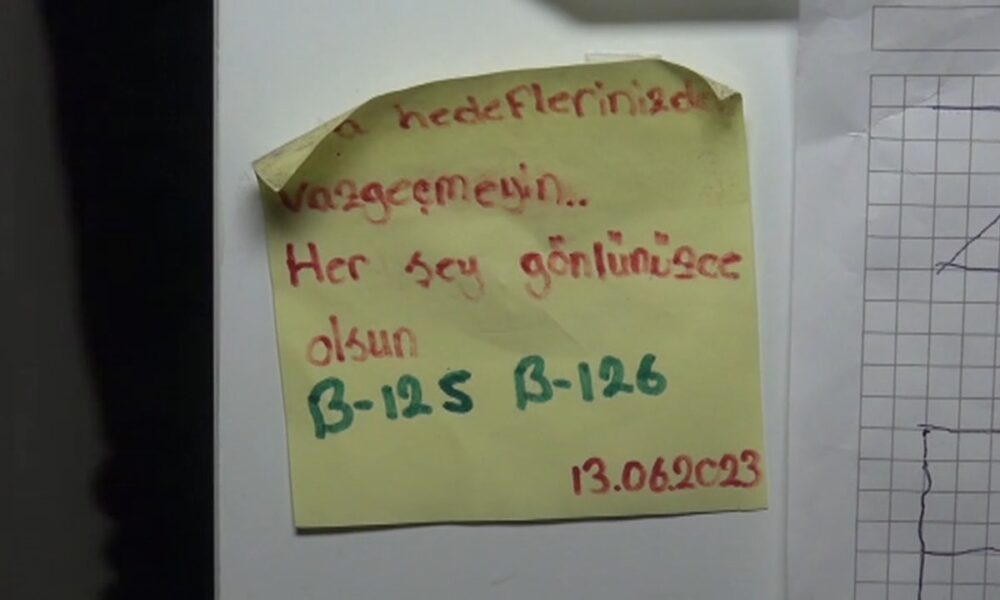 hedeflerinizde
vazgeçmeyin..
Her şey gönlünüzce
olsun
B-125 B-126
13.06.2023